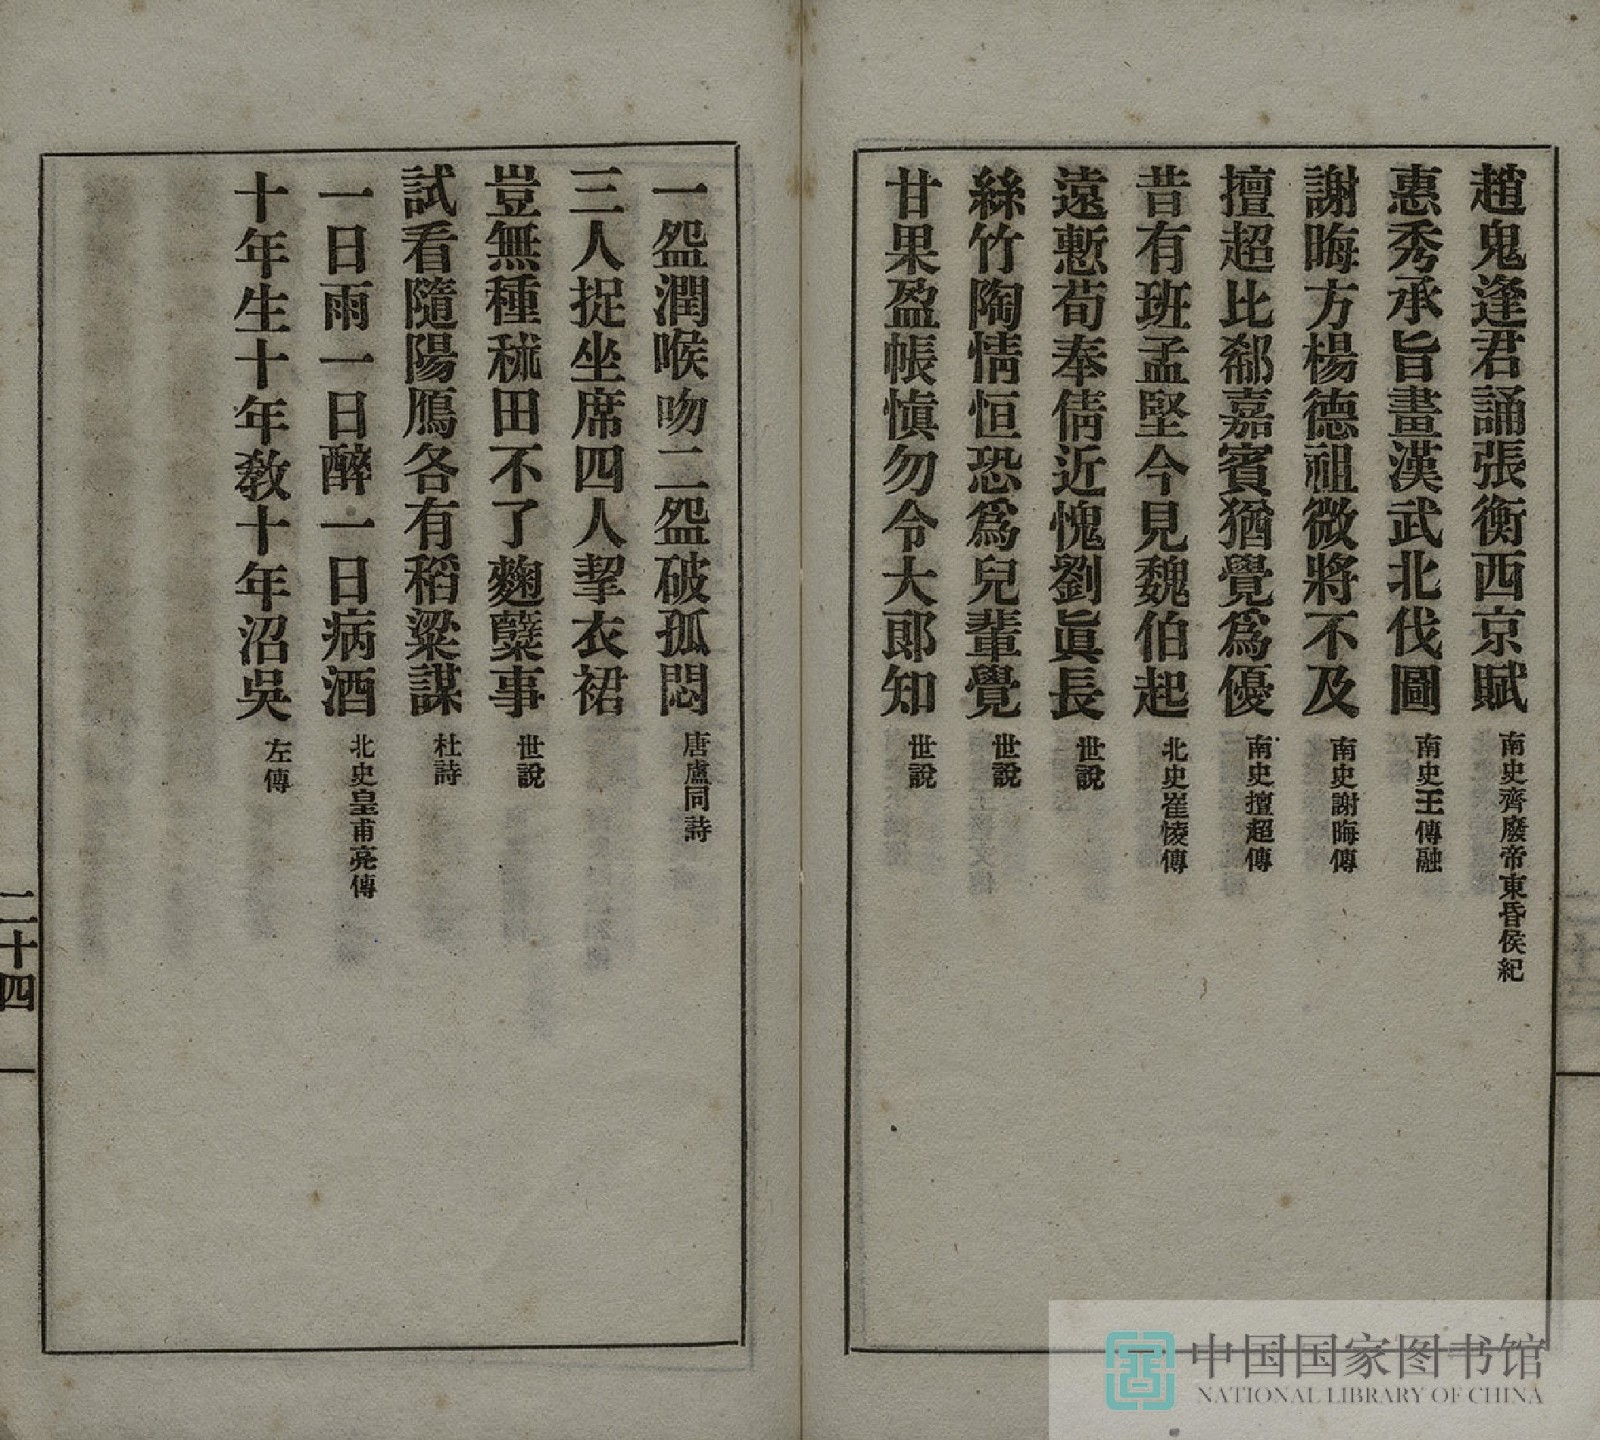 趙鬼逢君誦張衡西京賦 南史齊廢帝東昏侯紀
惠秀承旨畫漢武北伐圖 南史王傳融
謝晦方楊德祖微將不及 南史謝晦傳
擅超比郗嘉賓猶覺爲優 南史擅超傳
昔有班孟堅今見魏伯起 北史崔㥄傳
遠慙荀奉倩近愧劉眞長 世說
絲竹陶情恒恐爲兒輩覺 世說
甘果盈帳愼勿令大郎知 世說
一盌潤喉吻二盌破孤悶 唐盧同詩
三人捉坐席四人挈衣裙
豈無種秫田不了麴櫱事 世說
試看隨陽鴈各有稻粱謀 杜詩
一日雨一日醉一日病酒 北史皇甫亮傳
十年生十年敎十年沼吳 左傳
二十四
中国国家图书馆
NATIONAL LIBRARY OF CHINA